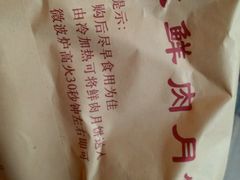 鲜肉月
提示：
购后尽早食用为佳
由冷加热可将鲜肉月饼送入
微波炉高火30秒钟左右即可